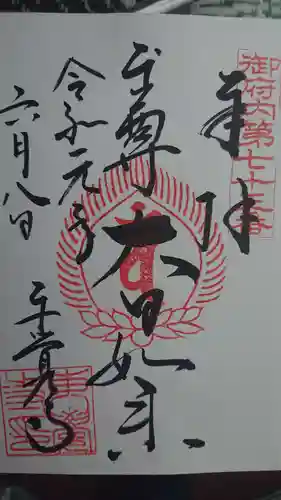 御府内第七十三番
奉拝
本尊
大日如来
令和元年
六月八日
東覚寺